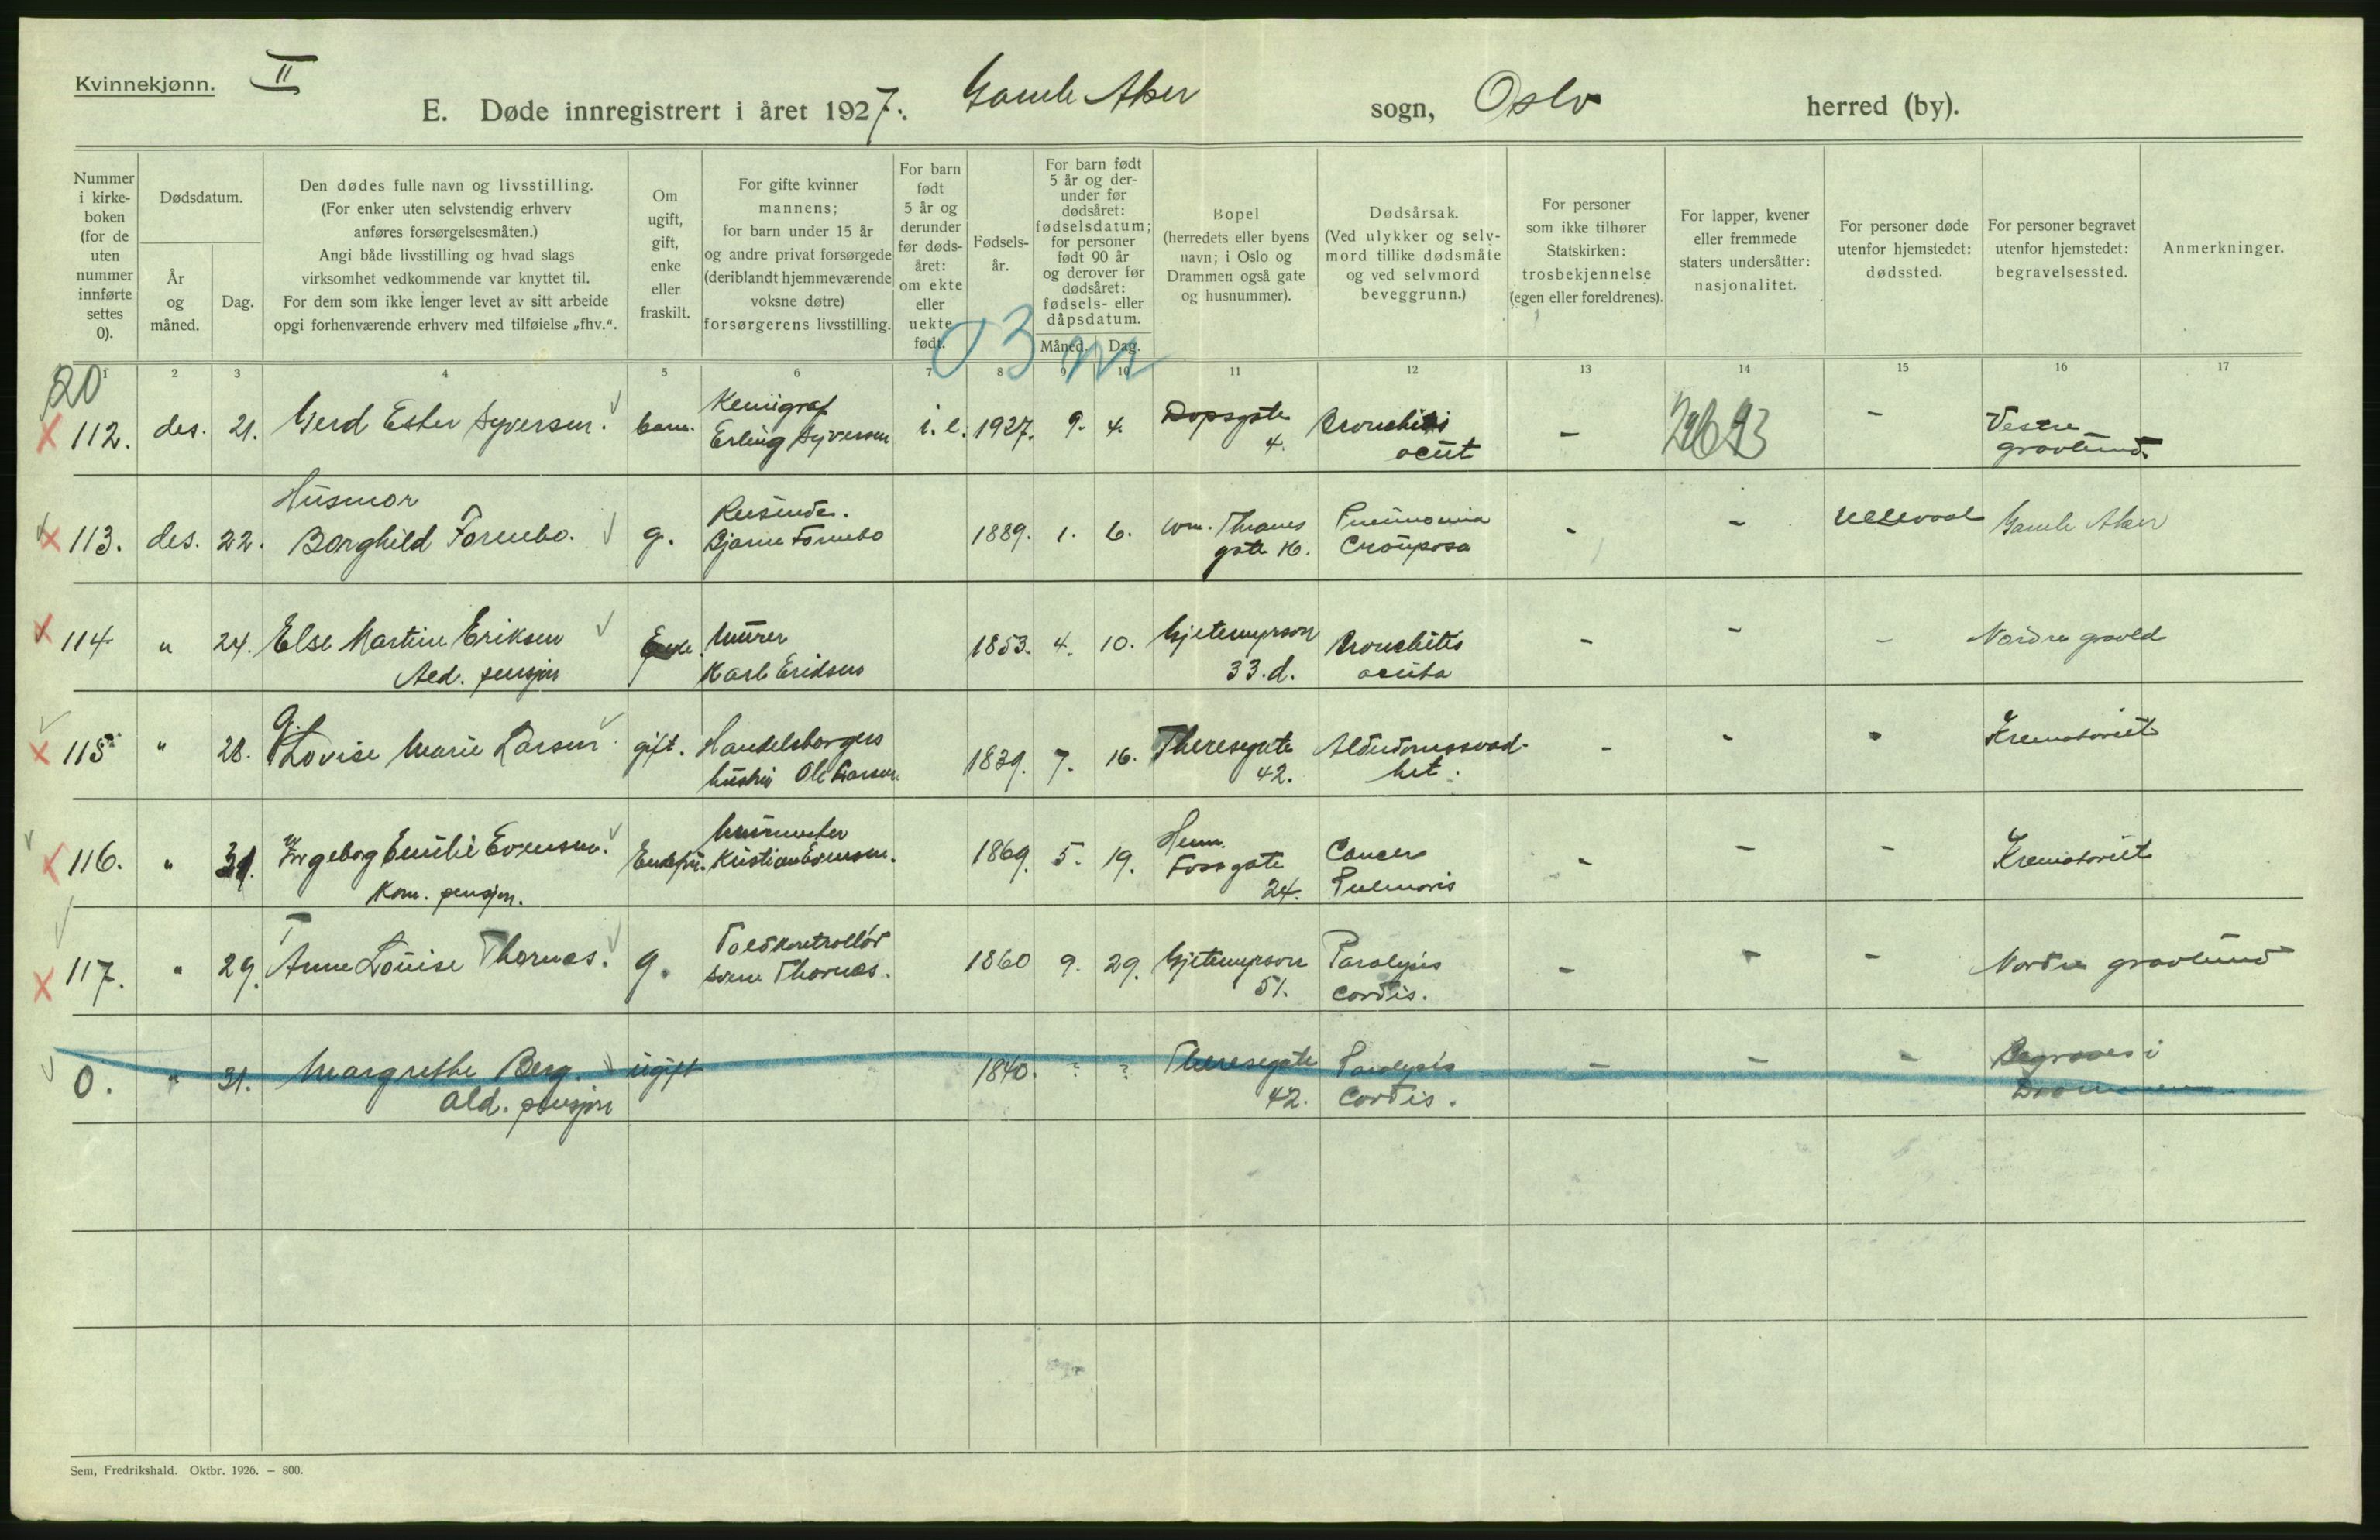 Kvinnekjønn. II
E. Døde innregistrert i året 1927. Gamle Aker sogn, Oslo herred (by).
Nummer i kirkeboken (for de uten nummer innførte settes 0).
Dødsdatum.
År og måned.
Dag.
Den dødes fulle navn og livsstilling.
(For enker uten selvstendig erhverv
anføres forsørgelsesmåten.)
Angi både livsstilling og hvad slags
virksomhet vedkommende var knyttet til.
For dem som ikke lenger levet av sitt arbeide
opgi forhenværende erhverv med tilføielse „fhv.“.
Om
ugift,
gift,
enke
eller
fraskilt.
For gifte kvinner
mannens;
for barn under 15 år
og andre privat forsørgede
(deriblandt hjemmeværende
voksne døtre)
forsørgerens livsstilling.
For barn
født
5 år og
derunder
før døds-
året:
om ekte
eller
uekte
født.
Fødsels-
år.
For barn født
5 år og der-
under før
dødsåret:
fødselsdatum;
for personer
født 90 år
og derover før
dødsåret:
fødsels- eller
dåpsdatum.
Måned. Dag.
Bopel
(herredets eller byens
navn; i Oslo og
Drammen også gate
og husnummer).
Dødsårsak.
(Ved ulykker og selv-
mord tillike dødsmåte
og ved selvmord
beveggrunn.)
For personer
som ikke tilhører
Statskirken:
trosbekjennelse
(egen eller foreldrenes).
For lapper, kvener
eller fremmede
staters undersåtter:
nasjonalitet.
For personer døde
utenfor hjemstedet:
dødssted.
For personer begravet
utenfor hjemstedet:
begravelsessted.
Anmerkninger.
03 m
1 2 3 4 5 6 7 8 9 10 11 12 13 14 15 16 17
20
112. des. 21. Gerd Ester Syversen. barn. Kemigraf Erling Syversen i.e. 1927. 9. 4. Dopsgate 4. Bronchitis acut - - Vestre gravlund.
113. des. 22. Husmor Borghild Fornebo. g. Reisende. Bjarne Fornebo 1889. 1. 6. Wm. Thranes gate 16. Pneumonia Crouposa - - Ullevaal Gamle Aker
114 " 24. Else Martine Eriksen Ald. pensjon Enke. Murer Karl Eriksen 1853. 4. 10. Gjetemyrsvn 33.d. Bronchitis acuta - - - Nordre gravld
115 " 28. Lovise Marie Larsen gift. Handelsborgers hustru Ole Larsen. 1839. 7. 16. Theresegate 42. Alderdomssvakhet. - - - Krematoriet
116. " 31. Ingeborg Emilie Evensen. Kom. pensjon. Enkefru. Murmester Kristian Evensen. 1869. 5. 19. Henr. Foss gate 24. Cancer Pulmonis - - - Krematoriet
117. " 29. Anne Louise Thornes. g. Toldkontrollør Thornes. 1860 9. 29. Gjetemyrsvn 51. Paralysis cordis. - - - Nordre gravlund
0. " 31. Margrethe Berg. Ald. pensjon ugift 1840. ? ? Theresegate 42. Paralysis Cordis. - - - Begraves i Drammen
Sem, Fredrikshald. Oktbr. 1926. – 800.